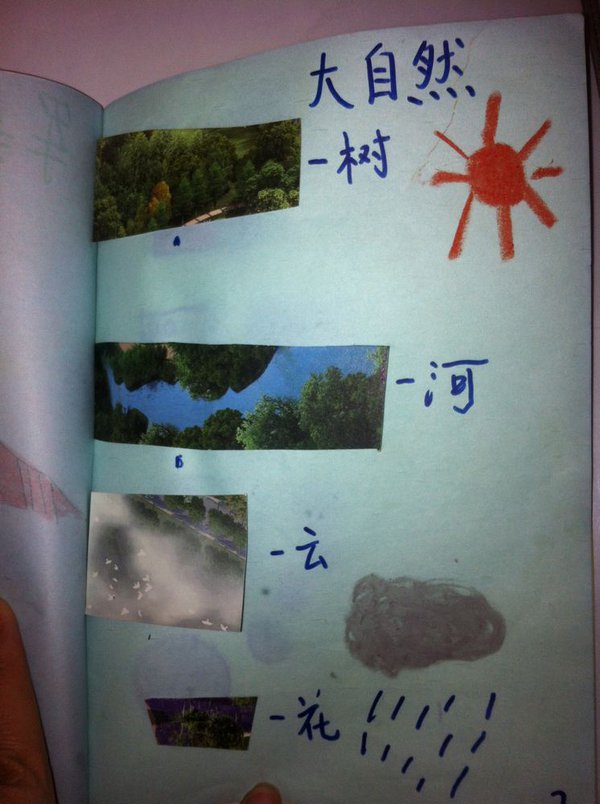 大自然
-树
A
-河
B
-云
-花